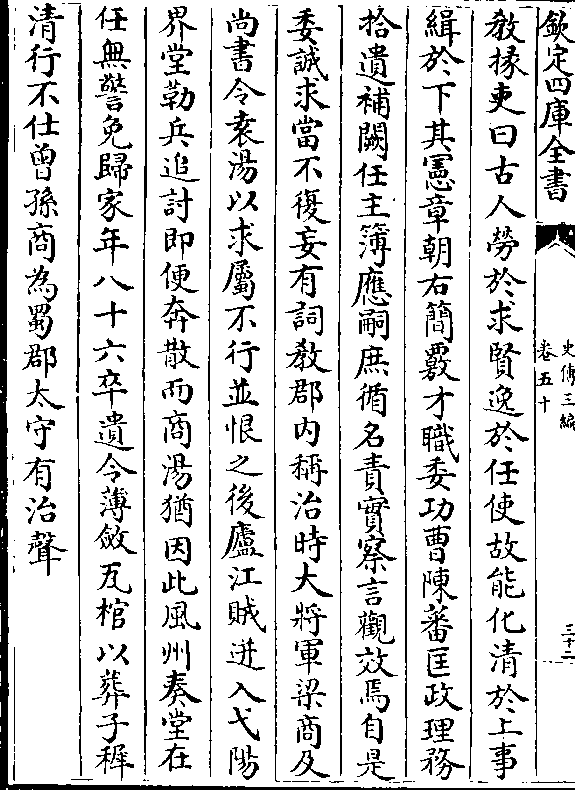 欽定四庫全書
史傳三編
卷五十
三十二
教掾吏曰古人勞於求賢逸於任使故能化清於上事
緝於下其憲章朝右簡覈才職委功曹陳蕃匡政理務
拾遺補闕任主簿應嗣庶循名責實察言觀效焉自是
委誠求當不復妄有詞教郡內稱治時大將軍梁商及
尚書令袁湯以求屬不行並恨之後廬江賊迸入弋陽
界堂勒兵追討即便奔散而商湯猶因此風州奏堂在
任無警免歸家年八十六卒遺令薄斂瓦棺以葬子穉
清行不仕曾孫商為蜀郡太守有治聲